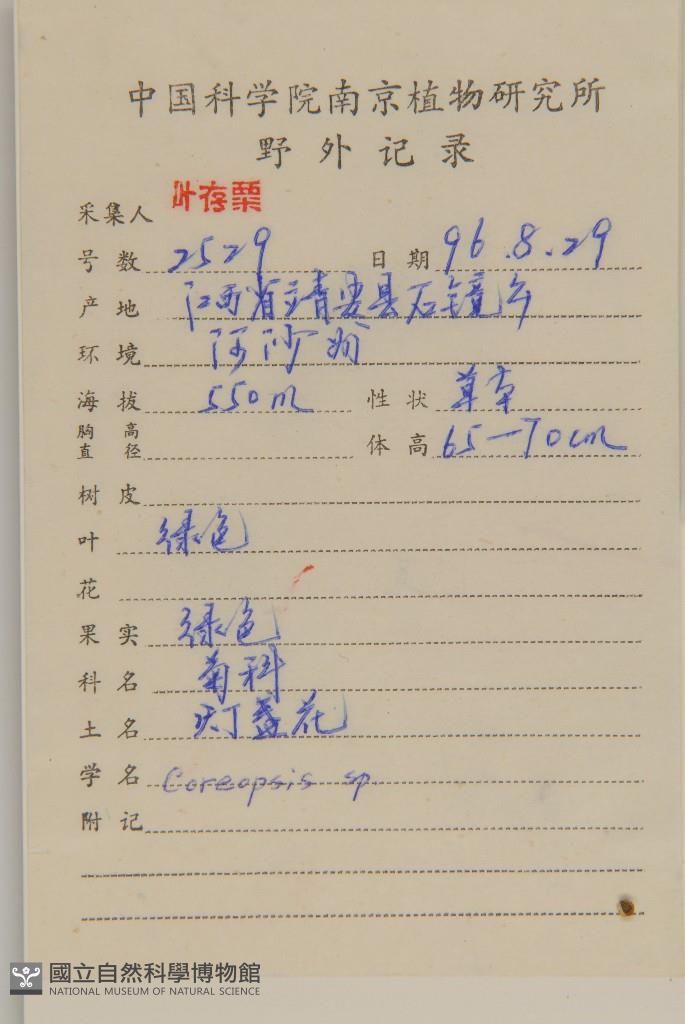 中国科学院南京植物研究所
野外记录
采集人 叶存粟
号数 2529 日期 96.8.29
产地 江西省靖安县石镜乡
环境
海拔 550m 性状 草本
胸高直径 体高 65—70cm
树皮
叶 绿色
花
果实 绿色
科名 菊科
土名 灯盏花
学名 Coreopsis sp
附记
國立自然科學博物館
NATIONAL MUSEUM OF NATURAL SCIENCE